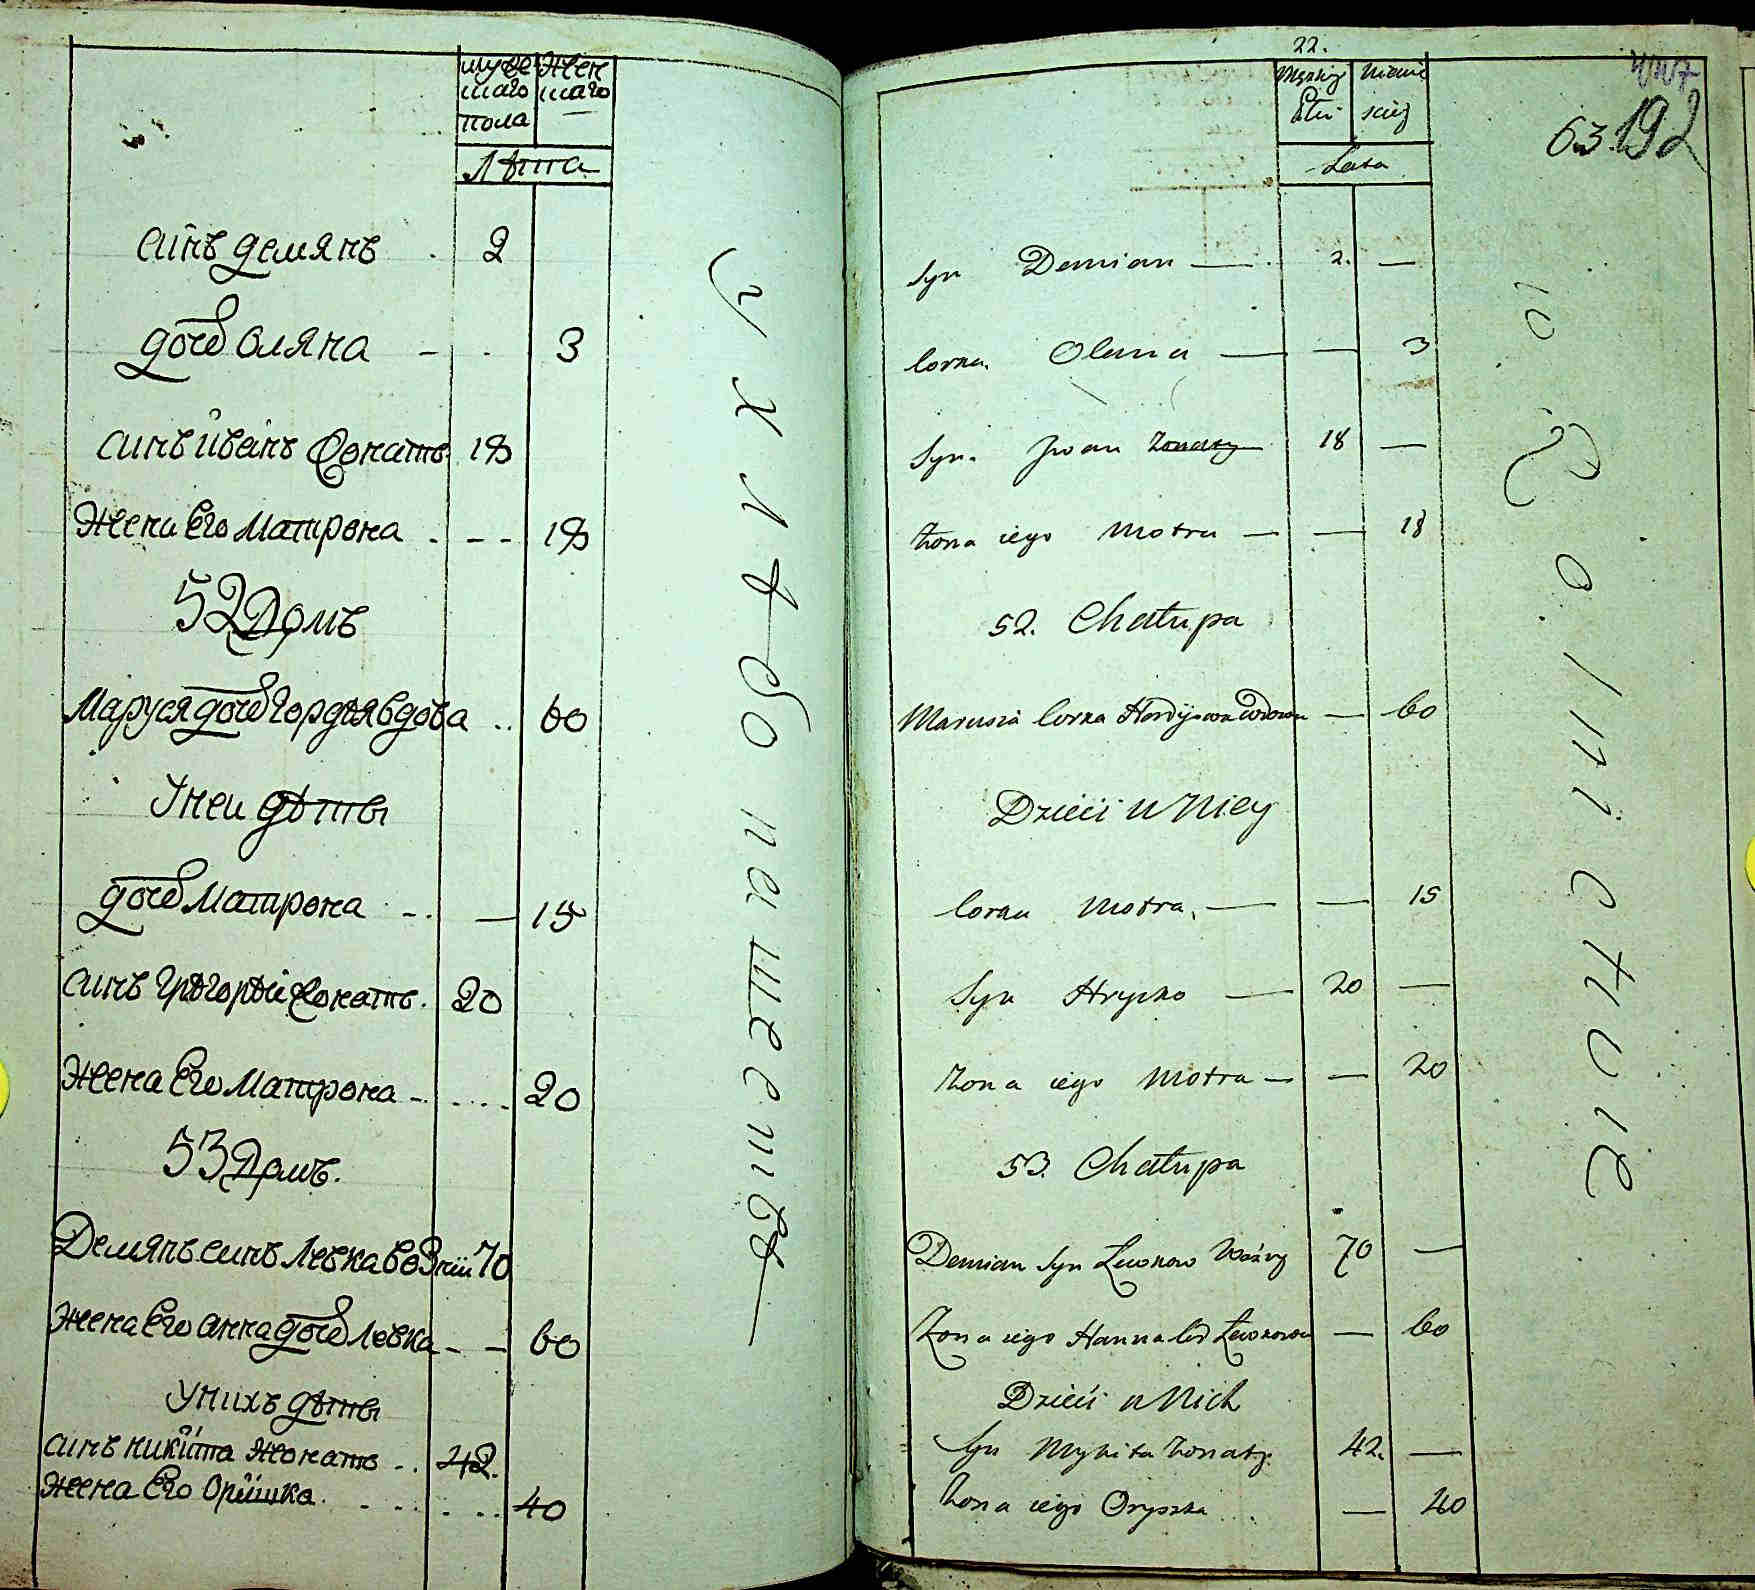 мужескаго пола
женскаго
Лѣта
синъ демянъ 2
дочь оляна 3
синъ иванъ жонатъ 18
жена его матрона 18
52 Домъ
Маруся дочь гордѣя вдова 60
У неи дѣти
дочь матрона 15
синъ григорѣи жонатъ 20
жена его матрона 20
53 Домъ.
Демянъ синъ левка возній 70
жена его анна дочь левка 60
у нихъ дѣти
синъ никита жонатъ 42.
жена его оришка 40
22.
Męskiey Płci
Lata
63.
192
syn Demian 2. —
Corka Olana — 3
syn Jwan żonaty 18 —
żona iego Motra — 18
52. Chałupa
Marusia Corka Hordyiowa Wdowa — 60
Dzieci u Niey
Corka Motra — 15
syn Hrycko 20 —
żona iego Motra — 20
53. Chałupa
Demian syn Lewkow Woźny 70 —
Żona iego Hanna Cor Lewkowa — 60
Dzieci u Nich
syn Mykita żonaty 42. —
żona iego Oryszka — 40